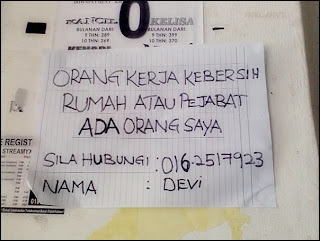 KANCIL
KELISA
0
BULANAN DARI
9 THN: 289
10 THN: 269
BULANAN DARI
9 THN: 399
10 THN: 370
ORANG KERJA KEBERSIH
RUMAH ATAU PEJABAT
ADA ORANG SAYA
SILA HUBUNGI : 016-2517923
NAMA : DEVI
E REGIST
STREAMYX